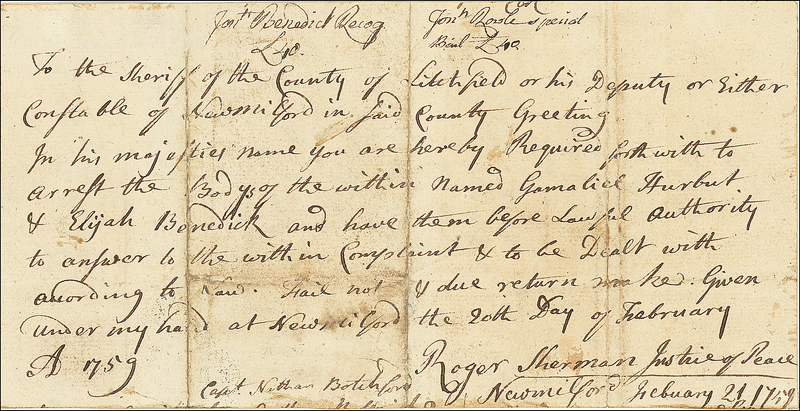 Jonth. Benedick Recog
£40.
Jonth. Bowls special
Bail £40
To the Sheriff of the County of Litchfield or his Deputy or Either
Constable of Newmilford in said County Greeting
In his majesties name you are hereby Required forthwith to
arrest the Bodys of the within Named Gamaliel Hurbut
& Elijah Bonedick and have them before Lawful Authority
to answer to the within Complaint & to be Dealt with
acording to Law. Fail not & due return make. Given
under my hand at Newmilford the 20th Day of February
A 1759
Roger Sherman Justice of Peace
Capt. Nathan Botchford Newmilford February 21 1759